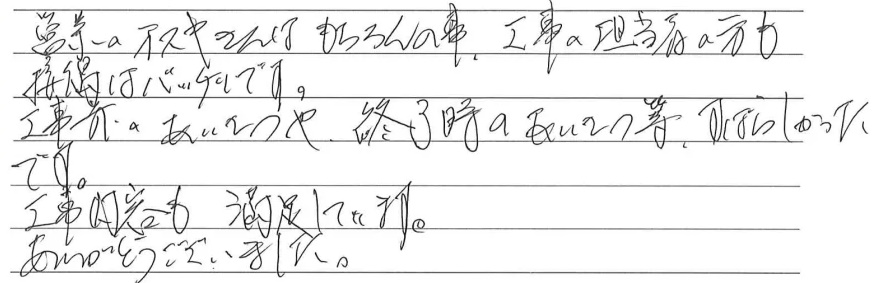 営業のオスキさんはもちろんの事、工事の担当者の方も
接得はバッチリです。
工事前のあいさつや、終了時のあいさつ等、すばらしかった
です。
工事内容も 満足しています。
ありがとうございました。